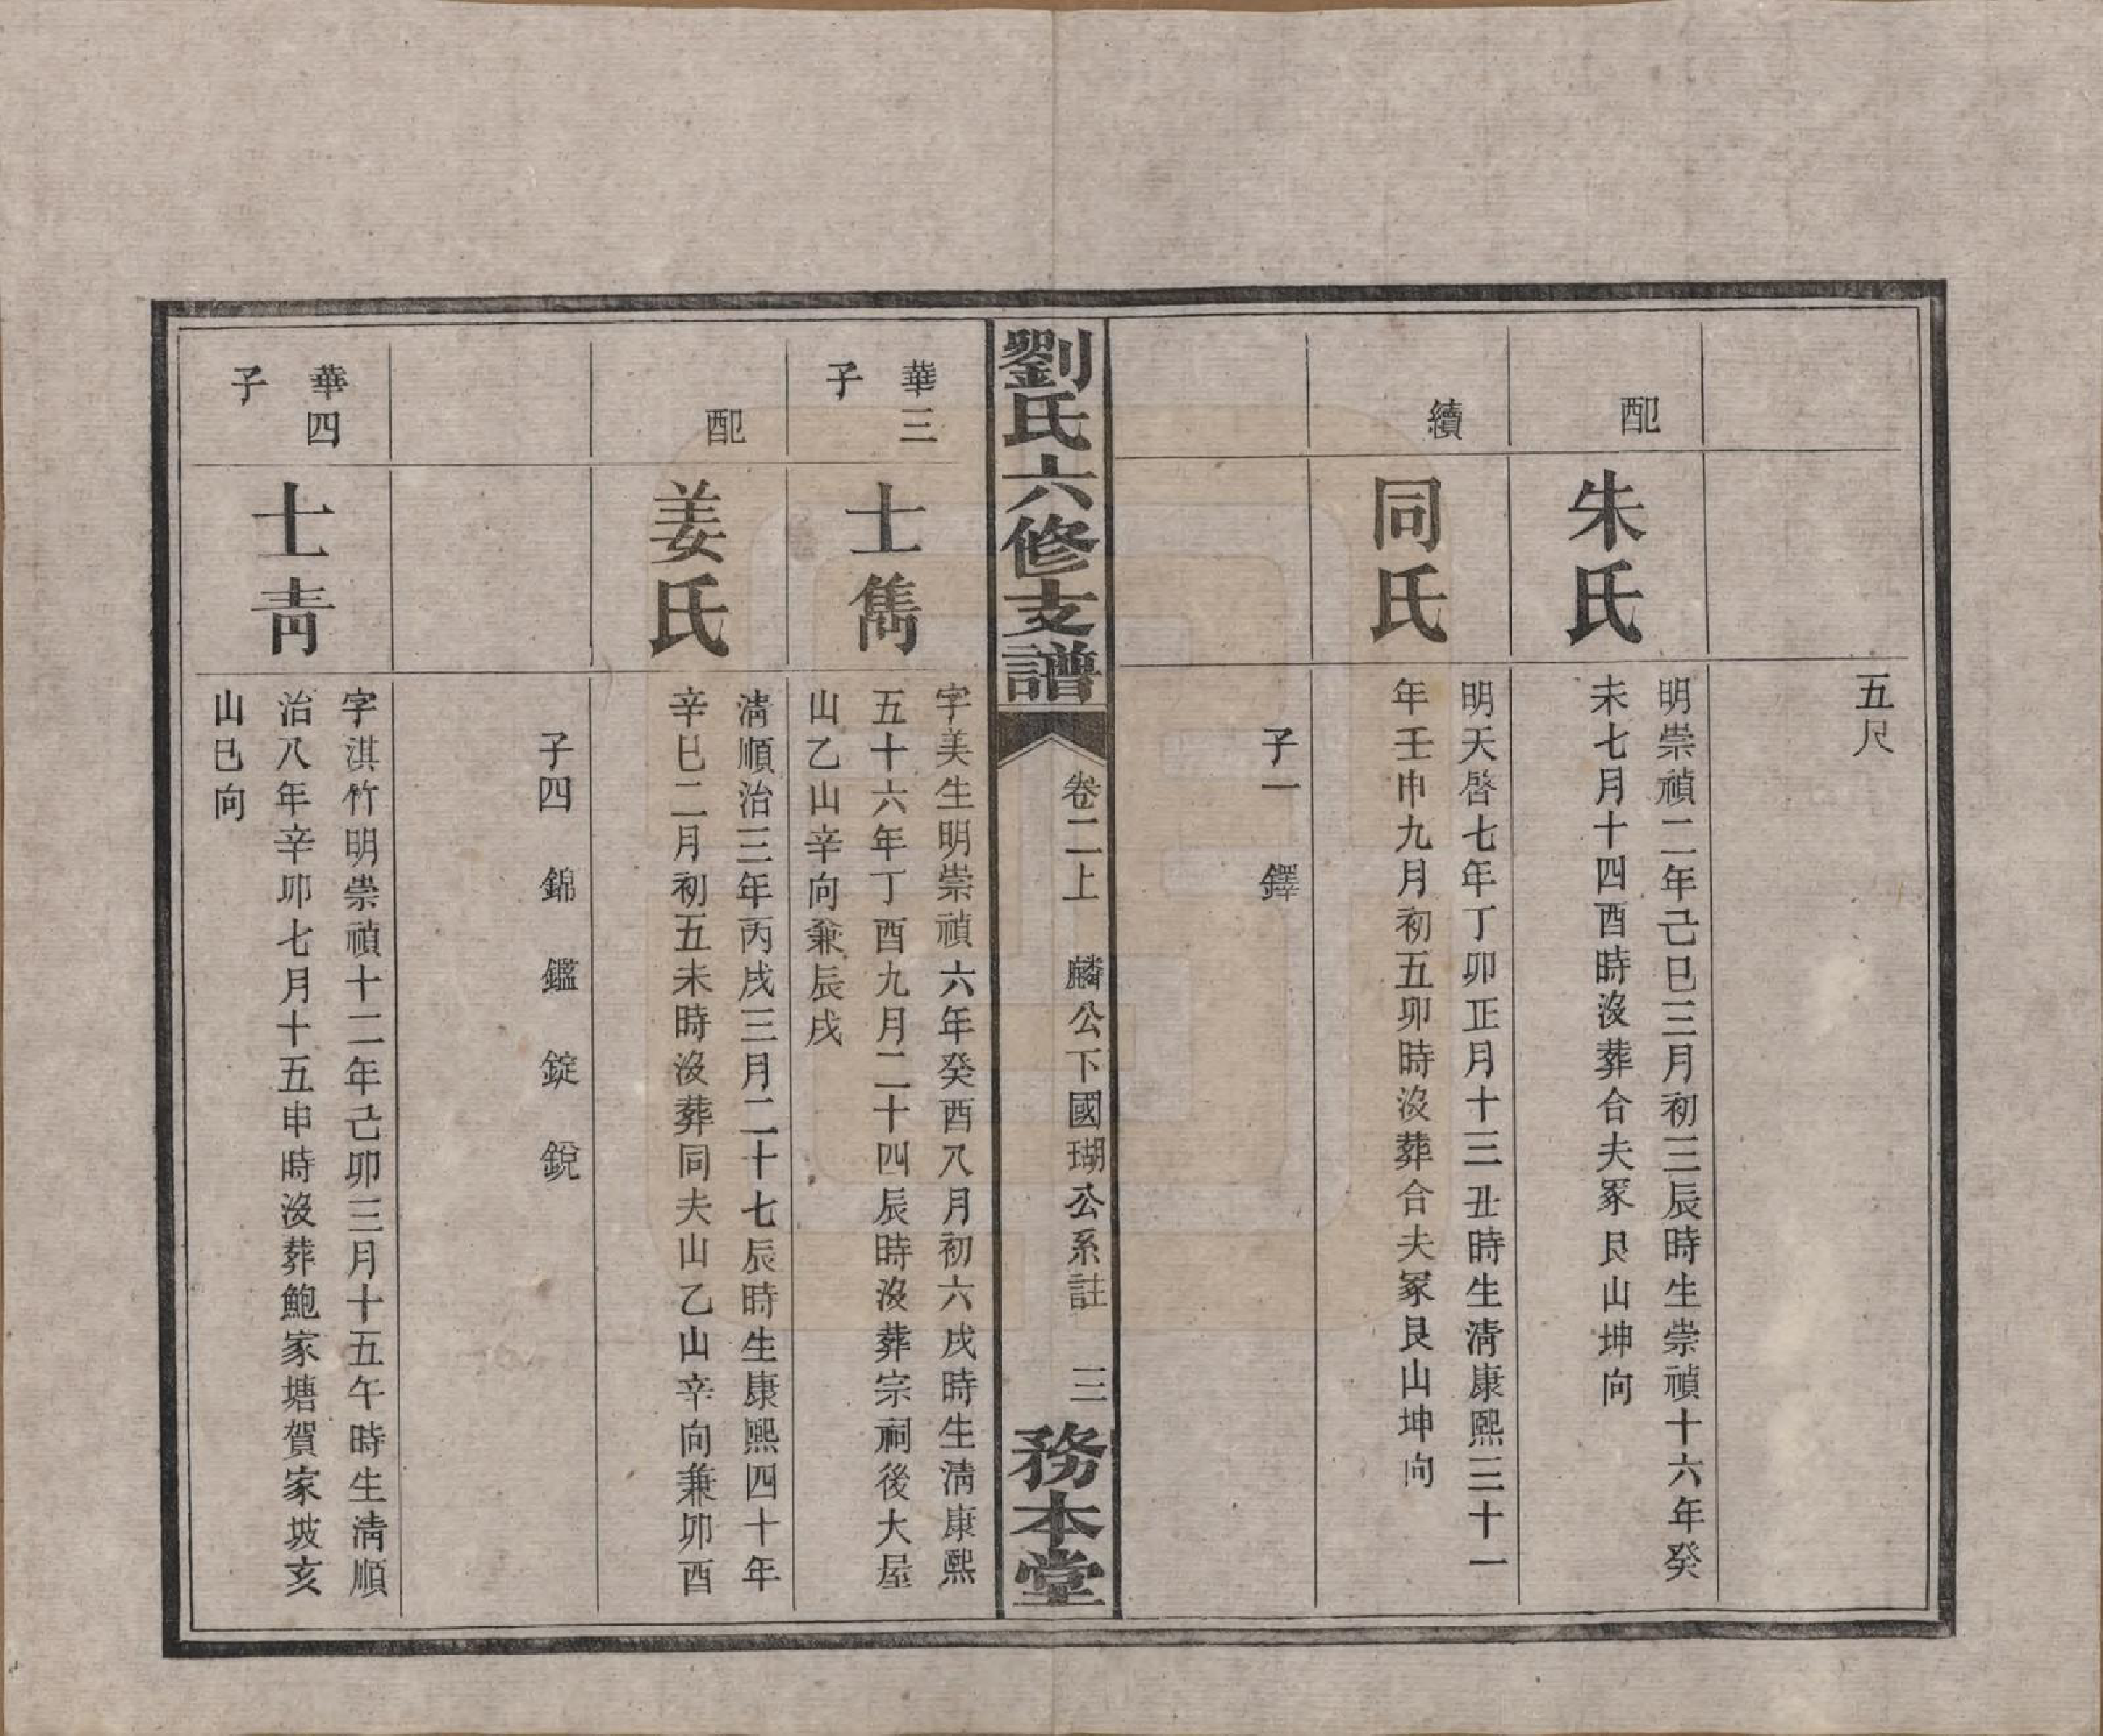 五尺
配
朱氏
明崇禎二年己巳三月初三辰時生崇禎十六年癸
未七月十四酉時沒葬合夫冢艮山坤向
續
同氏
明天啓七年丁卯正月十三丑時生淸康熙三十一
年壬申九月初五卯時沒葬合夫冢艮山坤向
子一 鐸
劉氏六修支譜
卷二上 麟公下國瑚公系註 三
務本堂
華三
子
士雋
字美生明崇禎六年癸酉八月初六戌時生淸康熙
五十六年丁酉九月二十四辰時沒葬宗祠後大屋
山乙山辛向兼辰戌
配
姜氏
淸順治三年丙戌三月二十七辰時生康熙四十年
辛巳二月初五未時沒葬同夫山乙山辛向兼卯酉
子四 錦 鑑 錠 銳
華四
子
士靑
字淇竹明崇禎十二年己卯三月十五午時生淸順
治八年辛卯七月十五申時沒葬鮑家塘賀家坡亥
山巳向